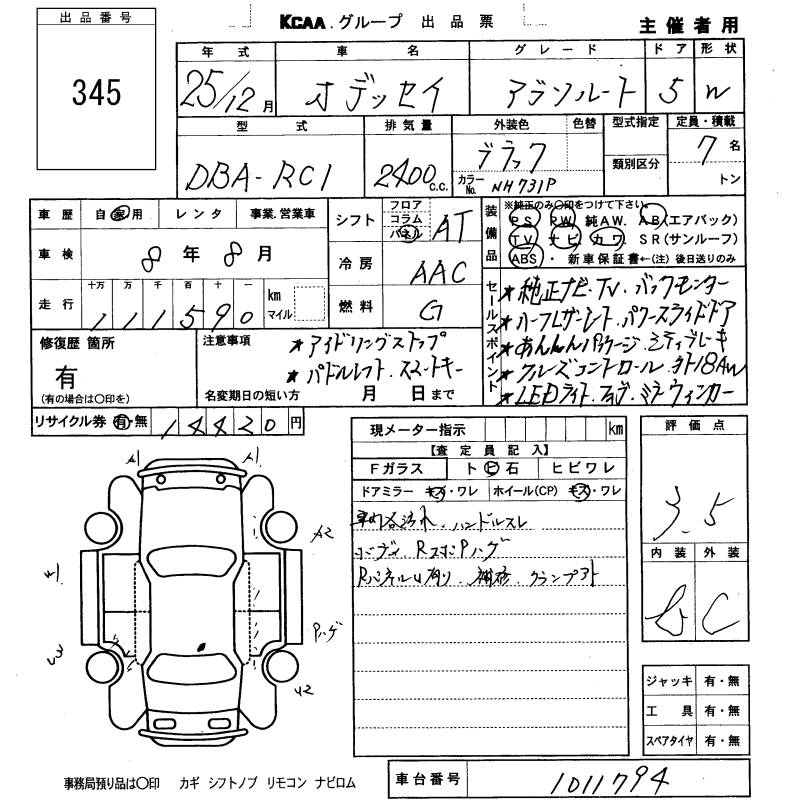 出品番号
345
KCAA.グループ 出品票
主催者用
年式 車名 グレード ドア 形状
25/12月 オデッセイ アブソルート 5 W
型式 排気量 外装色 色替 型式指定 定員・積載
DBA-RC1 2400 c.c. ブラック 類別区分 7名
カラーNo. NH731P トン
車歴 自家用 レンタ 事業.営業車
車検 8年8月
走行 十万 万 千 百 十 一
111590 km マイル
シフト フロア コラム パネル AT
冷房 AAC
燃料 G
装備品 ※純正のみ○印をつけて下さい。
PS PW 純AW. AB(エアバック)
TV ナビ カワ. SR(サンルーフ)
ABS・新車保証書←(注)後日送りのみ
セールスポイント
★純正ナビ・TV・バックモニター
★ハーフレザーシート.パワースライドドア
★あんしんパッケージ.シティブレーキ
★クルーズコントロール.
★LEDライト.フォグ.ミラーウィンカー
修復歴 箇所
有
(有の場合は○印を)
注意事項
★アイドリングストップ
★パドルシフト.スマートキー
名変期日の短い方 月 日まで
リサイクル券 有・無 14420円
現メーター指示 km
【査定員記入】
Fガラス トビ石 ヒビワレ
ドアミラー キズ・ワレ ホイール(CP) キズ・ワレ
ハンドルスレ
Pハゲ
有り.補修.クランプアト
評価点
3.5
内装 外装
C
A1 A1
A2
Pハゲ
U2
ジャッキ 有・無
工具 有・無
スペアタイヤ 有・無
事務局預り品は○印 カギ シフトノブ リモコン ナビロム
車台番号 1011794